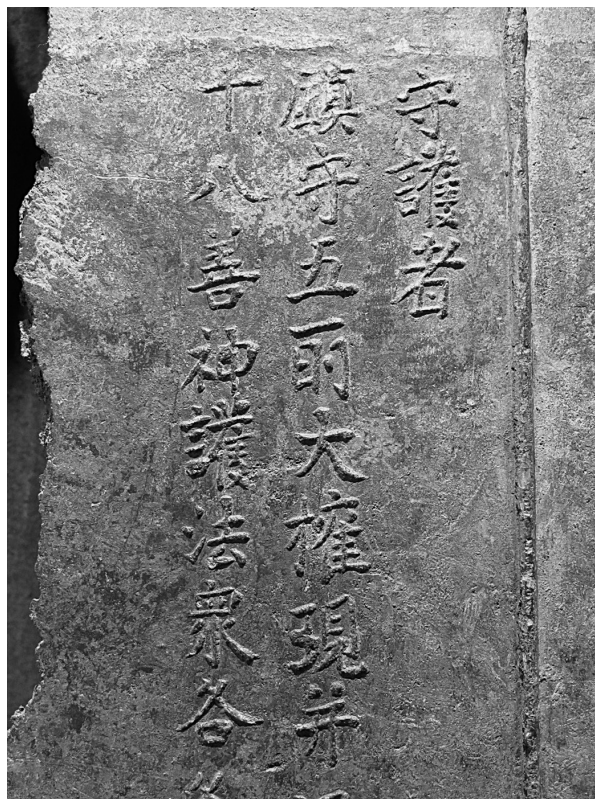 守護者
鎮守五所大権現并
十八善神護法衆各